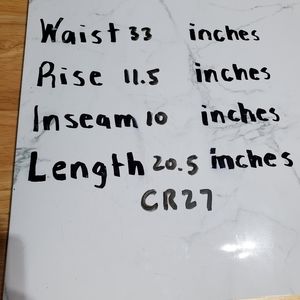 Waist 33 inches
Rise 11.5 inches
Inseam 10 inches
Length 20.5 inches
CR27